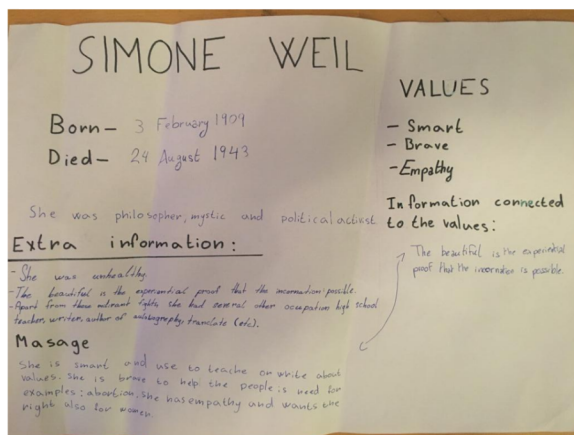 SIMONE WEIL
Born- 3 February 1909
Died- 24 August 1943
She was philosopher, mystic and political activist
Extra information:
- She was unhealthy.
- The beautiful is the experiential proof that the incarnation possible.
- Apart from these rights, she had several other occupation high school
teacher, writer, author of autobiography, translate (etc).
Masage
She is smart and use to teache or write about
values. She is brave to help the people is need for
examples; abortion, she has empathy and wants the
right also for women.
VALUES
- Smart
- Brave
- Empathy
Information connected
to the values:
The beautiful is the experiential
proof that the incernation is possible.